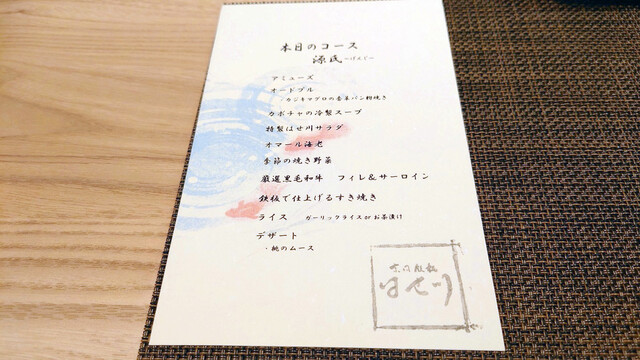 本日のコース
源氏 ~げんじ~
アミューズ
オードブル
・カジキマグロの香草パン粉焼き
カボチャの冷製スープ
特製はせ川サラダ
オマール海老
季節の焼き野菜
厳選黒毛和牛　フィレ＆サーロイン
鉄板で仕上げるすき焼き
ライス　ガーリックライスorお茶漬け
デザート
・桃のムース